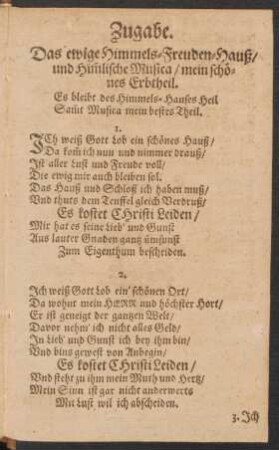 Zugabe.
Das ewige Himmels-Freuden-Hauß/
und Him̃lische Musica / mein schö-
nes Erbtheil.
Es bleibt des Himmels-Hauses Heil
Samt Musica mein bestes Theil.
1.
ICh weiß Gott Lob ein schönes Hauß/
Da kom̃ ich nun und nimmer drauß/
Ist aller Lust und Freude voll/
Die ewig mir auch bleiben sol.
Das Hauß und Schloß ich haben muß/
Und thuts dem Teuffel gleich Verdruß/
Es kostet CHristi Leiden/
Mir hat es seine Lieb' und Gunst
Aus lauter Gnaden gantz ümsunst
Zum Eigenthum bescheiden.
2.
Ich weiß Gott Lob ein' schönen Ort/
Da wohnt mein HERR und höchster Hort/
Er ist geneigt der gantzen Welt/
Davor nehm' ich nicht alles Geld/
In Lieb' und Gunst ich bey ihm bin/
Und bins gewest von Anbegin/
Es kostet CHristi Leiden/
Und steht zu ihm mein Muth und Hertz/
Mein Sinn ist gar nicht anderwerts
Mit Lust wil ich abscheiden.
3. Ich